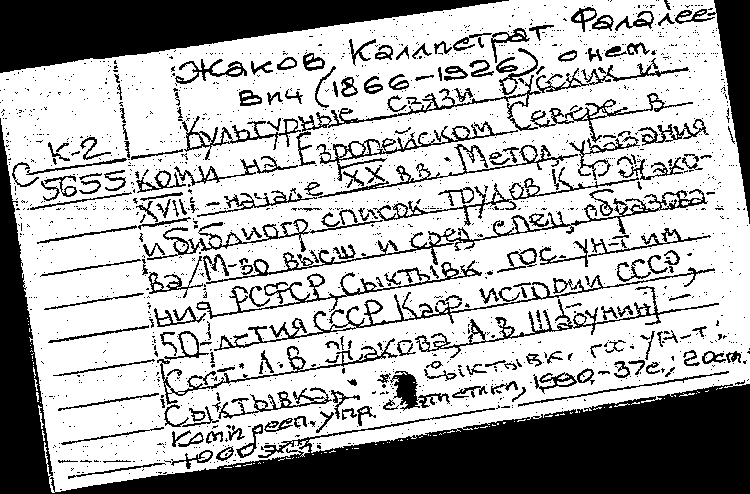 Жаков, Каллистрат Фалалее-
вич (1866-1926), о нем.
Культурные связи русских и
С К-2
5655
коми на Европейском Севере в
XVII - начале XX вв.: Метод. указания
и библиогр. список трудов К.Ф. Жако-
ва / М-во высш. и сред. спец. образова-
ния РСФСР, Сыктывк. гос. ун-т им.
50-летия СССР. Каф. истории СССР;
[Сост.: Л.В. Жакова, А.В. Шабунин] -
Сыктывкар: Сыктывк. гос. ун-т:
Коми респ. упр. статистики, 1990.-37с.; 20см.
1000 экз.